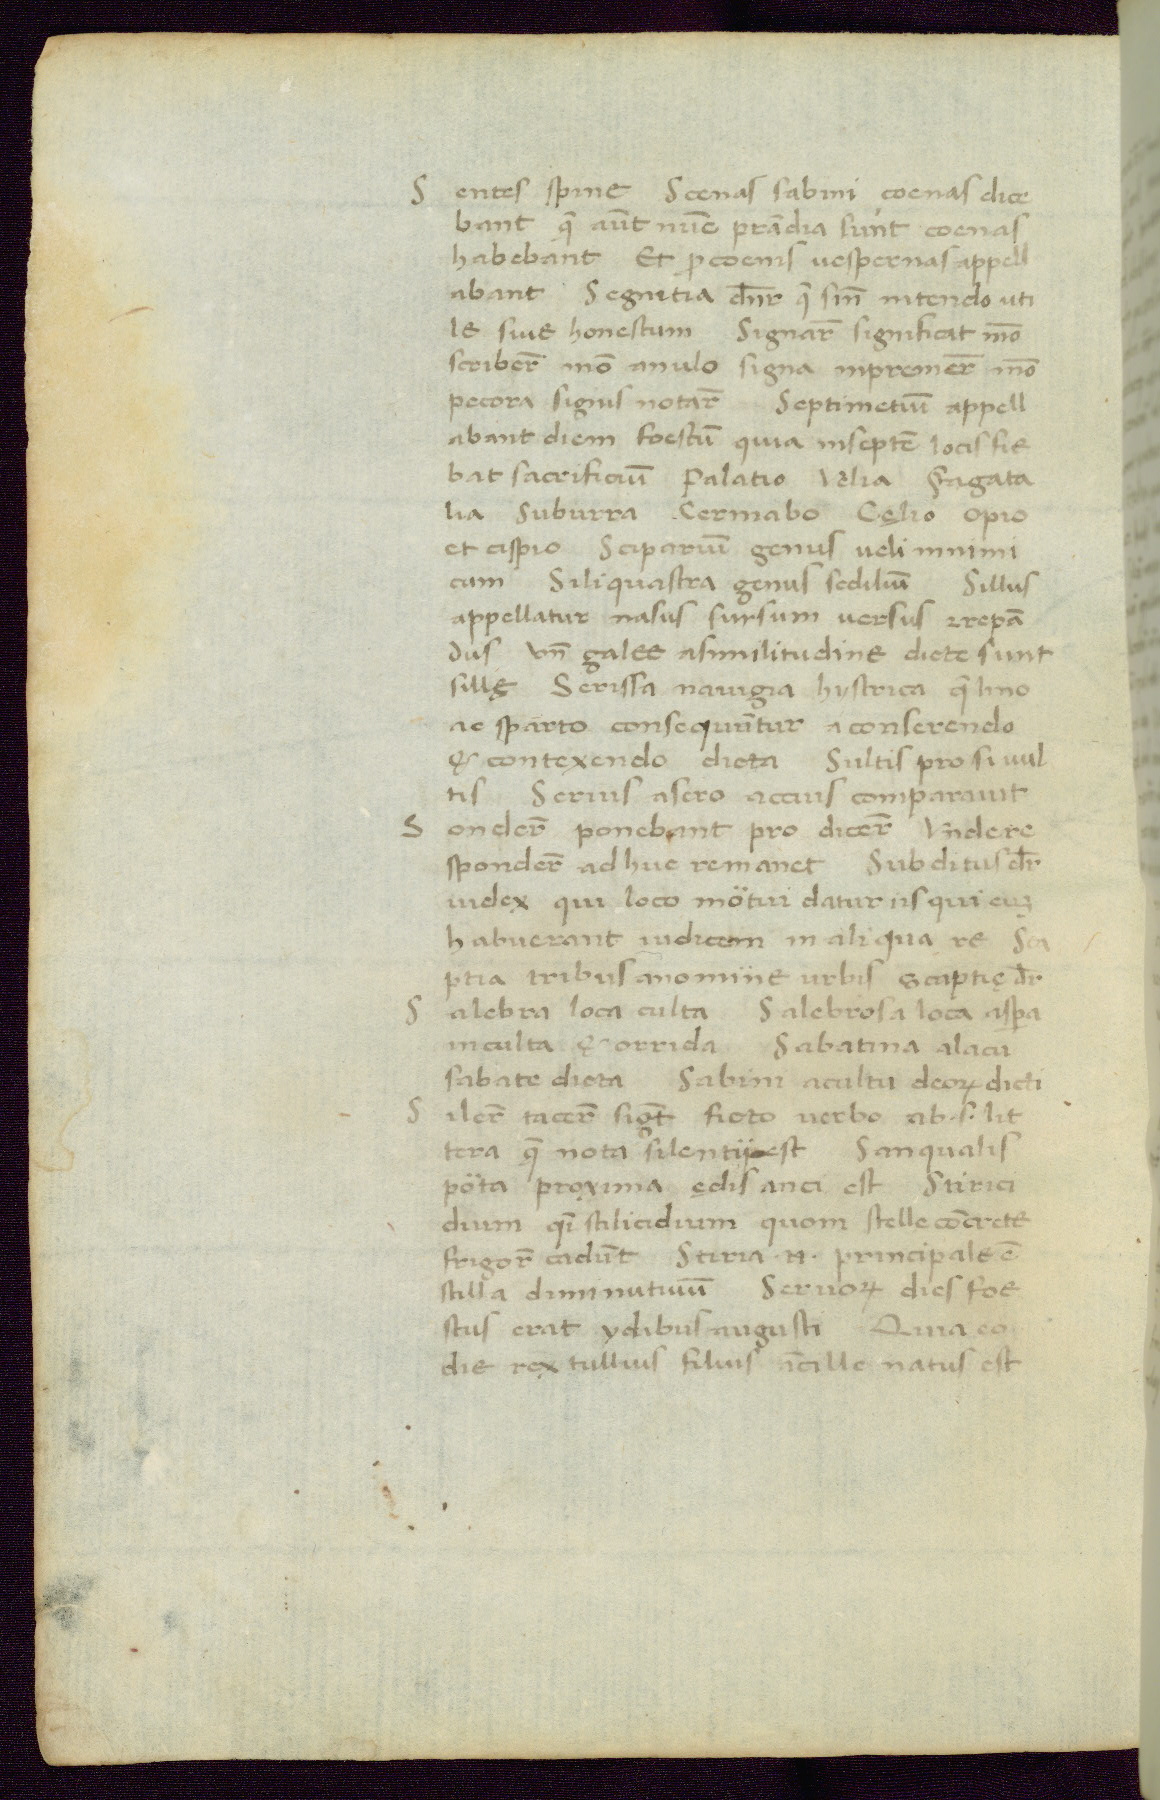 S entes spine Scenas sabini coenas dice
bant q̄ aūt nūc prādia sunt coenas
habebant Et p̱ coenis uespernas appell
abant Segnitia dn̄r q̄ sin̄ nitendo uti
le siue honestum Signar̄ significat mō
scriber̄ mō anulo signa inpremer̄ mō
pecora signis notar̄ Septimetiū appell
abant diem foestū quia inseptē locis fie
bat sacrificiū Palatio Velia Fagata
lia Suburra Cermabo Cęlio opio
et cispio Scipariū genus ueli minimi
cum Siliquastra genus sediliū Sillus
appellatur nasus sursum uersus ⁊repā
dus Vn̄ galee asimilitudine dicte sunt
sillę Serissa nauigia hystrica q̄ lino
ac sparto consequūtur aconserendo
& contexendo dicta Sultis pro si uul
tis Serius asero accius comparauit
S onder̄ ponebant pro dicer̄ Vndere
sponder̄ adhuc remanet Subditus dr̄
iudex qui loco mötui datur iis qui euꝫ
habuerant iudicem in aliqua re Sca
ptia tribus anomine urbis Scaptię dr̄
S alebra loca culta Salebrosa loca asp̱a
inculta & orrida Sabatina alacu
sabate dicta Sabini acultu deoꝝ dicti
S iler̄ tacer̄ sigt̄ ficto uerbo ab ·s· lit
tera q̄ nota silentii est Sanqualis
pöta proxima ędis anci est Stirici
dium q̄i stilicidium quom stelle cōcrete
frigor̄ cadūt Stiria ·n· principale ē
stilla diminutiuū Seruoꝝ dies foe
stus erat ydibus augusti Quia eo
die rex tullius filius ācille natus est